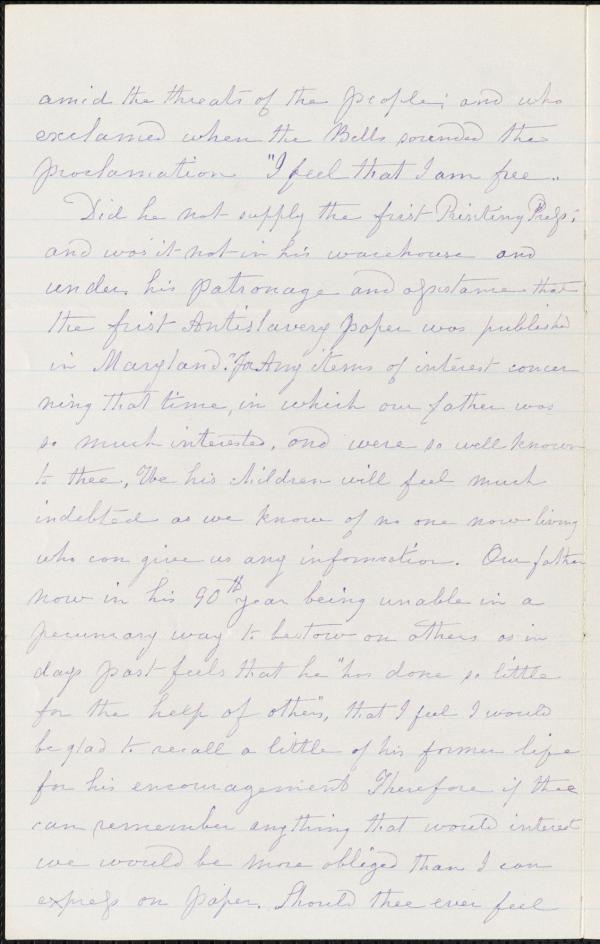 amid the threats of the people; and who
exclamed when the Bells sounded the
proclamation "I feel that I am free"
Did he not supply the first Printing Press;
and was it not in his warehouse and
under his patronage and assistance that
the first Antislavery paper was published
in Maryland? For Any items of interest concer
ning that time, in which our father was
so much interested, and were so well known
to thee, We his children will feel much
indebted as we know of no one now living
who can give us any information. Our father
now in his 90th year being unable in a
pecuniary way to bestow on others as in
days past feels that he "has done so little
for the help of others", that I feel I would
be glad to recall a little of his former life
for his encouragement Therefore if thee
can remember anything that would interest
we would be more obliged than I can
express on paper. Should thee ever feel